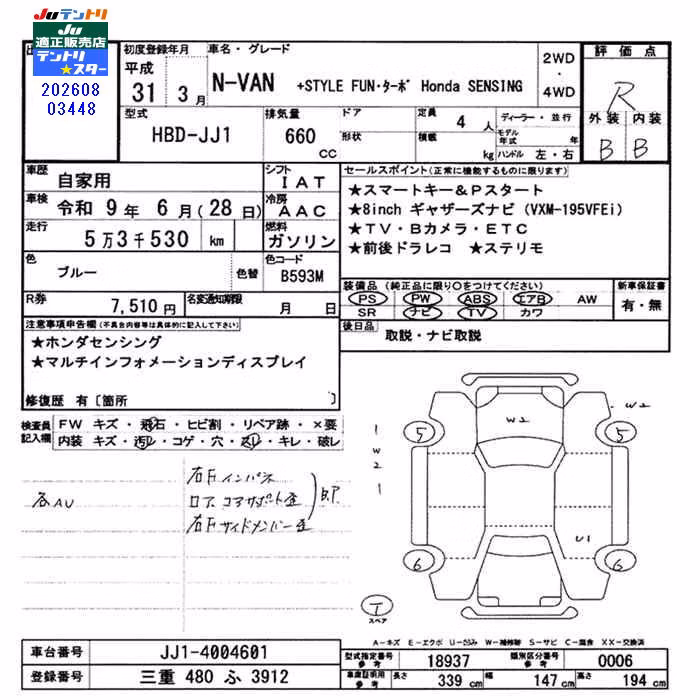 Juテントリ
Ju
適正販売店
テントリ
★スター
202608
03448
初度登録年月
平成
31 3月
車名・グレード
N-VAN +STYLE FUN・ターボ Honda SENSING
2WD
・
4WD
評価点
R
外装 内装
B B
型式
HBD-JJ1
排気量
660
CC
ドア
形状
定員
4 人
積載
kg
ディーラー・並行
モデル年式 年
ハンドル 左・右
車歴
自家用
シフト
IAT
車検
令和 9年 6月(28日)
冷房
AAC
走行
5万3千530 km
燃料
ガソリン
色
ブルー
色替
色コード
B593M
R券
7,510円
名変通知期限
月 日
セールスポイント(正常に機能するものに限ります)
★スマートキー&Pスタート
★8inch ギャザーズナビ (VXM-195VFEi)
★TV・Bカメラ・ETC
★前後ドラレコ ★ステリモ
装備品 (純正品に限り○をつけてください)
PS PW ABS エアB AW
SR ナビ TV カワ
新車保証書
有・無
後日品
取説・ナビ取説
注意事項申告欄(不具合内容等は具体的に記入して下さい)
★ホンダセンシング
★マルチインフォメーションディスプレイ
修復歴 有〔箇所 〕
検査員
記入欄
FW キズ・飛石・ヒビ割・リペア跡・×要
内装 キズ・汚レ・コゲ・穴・スレ・キレ・破レ
各AU
右Fインパネ
ロアコアサポート歪
右Fサイドメンバー歪
B.P
1
W2
1
W2
W2
5
5
U1
6
6
T
スペア
A-キズ E-エクボ U-凹ミ W-補修跡 S-サビ C-腐食 XX-交換済
車台番号
JJ1-4004601
登録番号
三重 480 ふ 3912
型式指定番号
参考
18937
類別区分番号
参考
0006
車庫証明用
参考
長さ
339 cm
幅
147 cm
高さ
194 cm